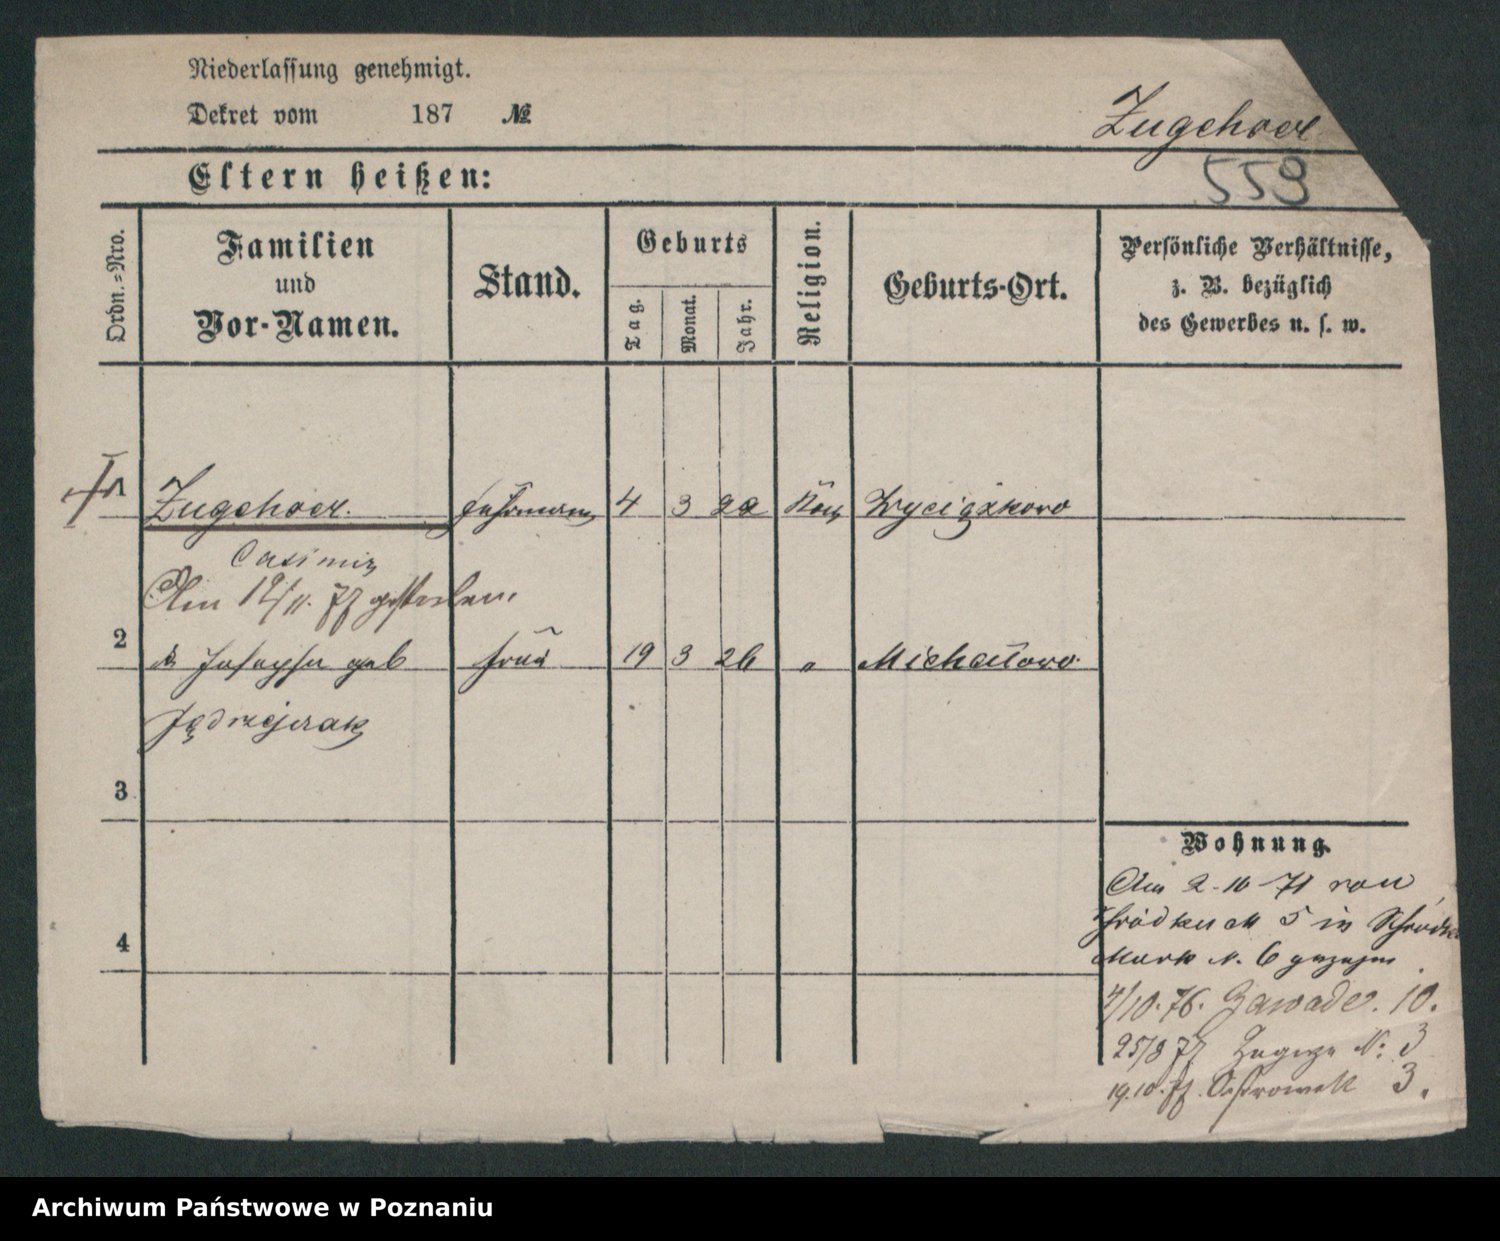 Niederlassung genehmigt.
Dekret vom 187 №
Zugehoer
559
Eltern heißen:
Ordn.-Nro.
Familien und Vor-Namen.
Stand.
Geburts
Tag.
Monat.
Jahr.
Religion.
Geburts-Ort.
Persönliche Verhältnisse,
z. B. bezüglich
des Gewerbes u. s. w.
1 Zugehoer. Fuhrmann 4 3 22 Kath
Casimir
Am 12/11. 77 gestorben.
2 Josepha geb Frau 19 3 26 " Michałowo
Jędrzejczak
3
4
Wohnung.
Am 2-10-71 von
Schrodka № 5 in Schrodka
Markt N. 6 gezogen
4/10. 76. Zawade. 10.
25/8 77 Zagorze N: 3
19.10.77. Ostrowek 3.
Archiwum Państwowe w Poznaniu